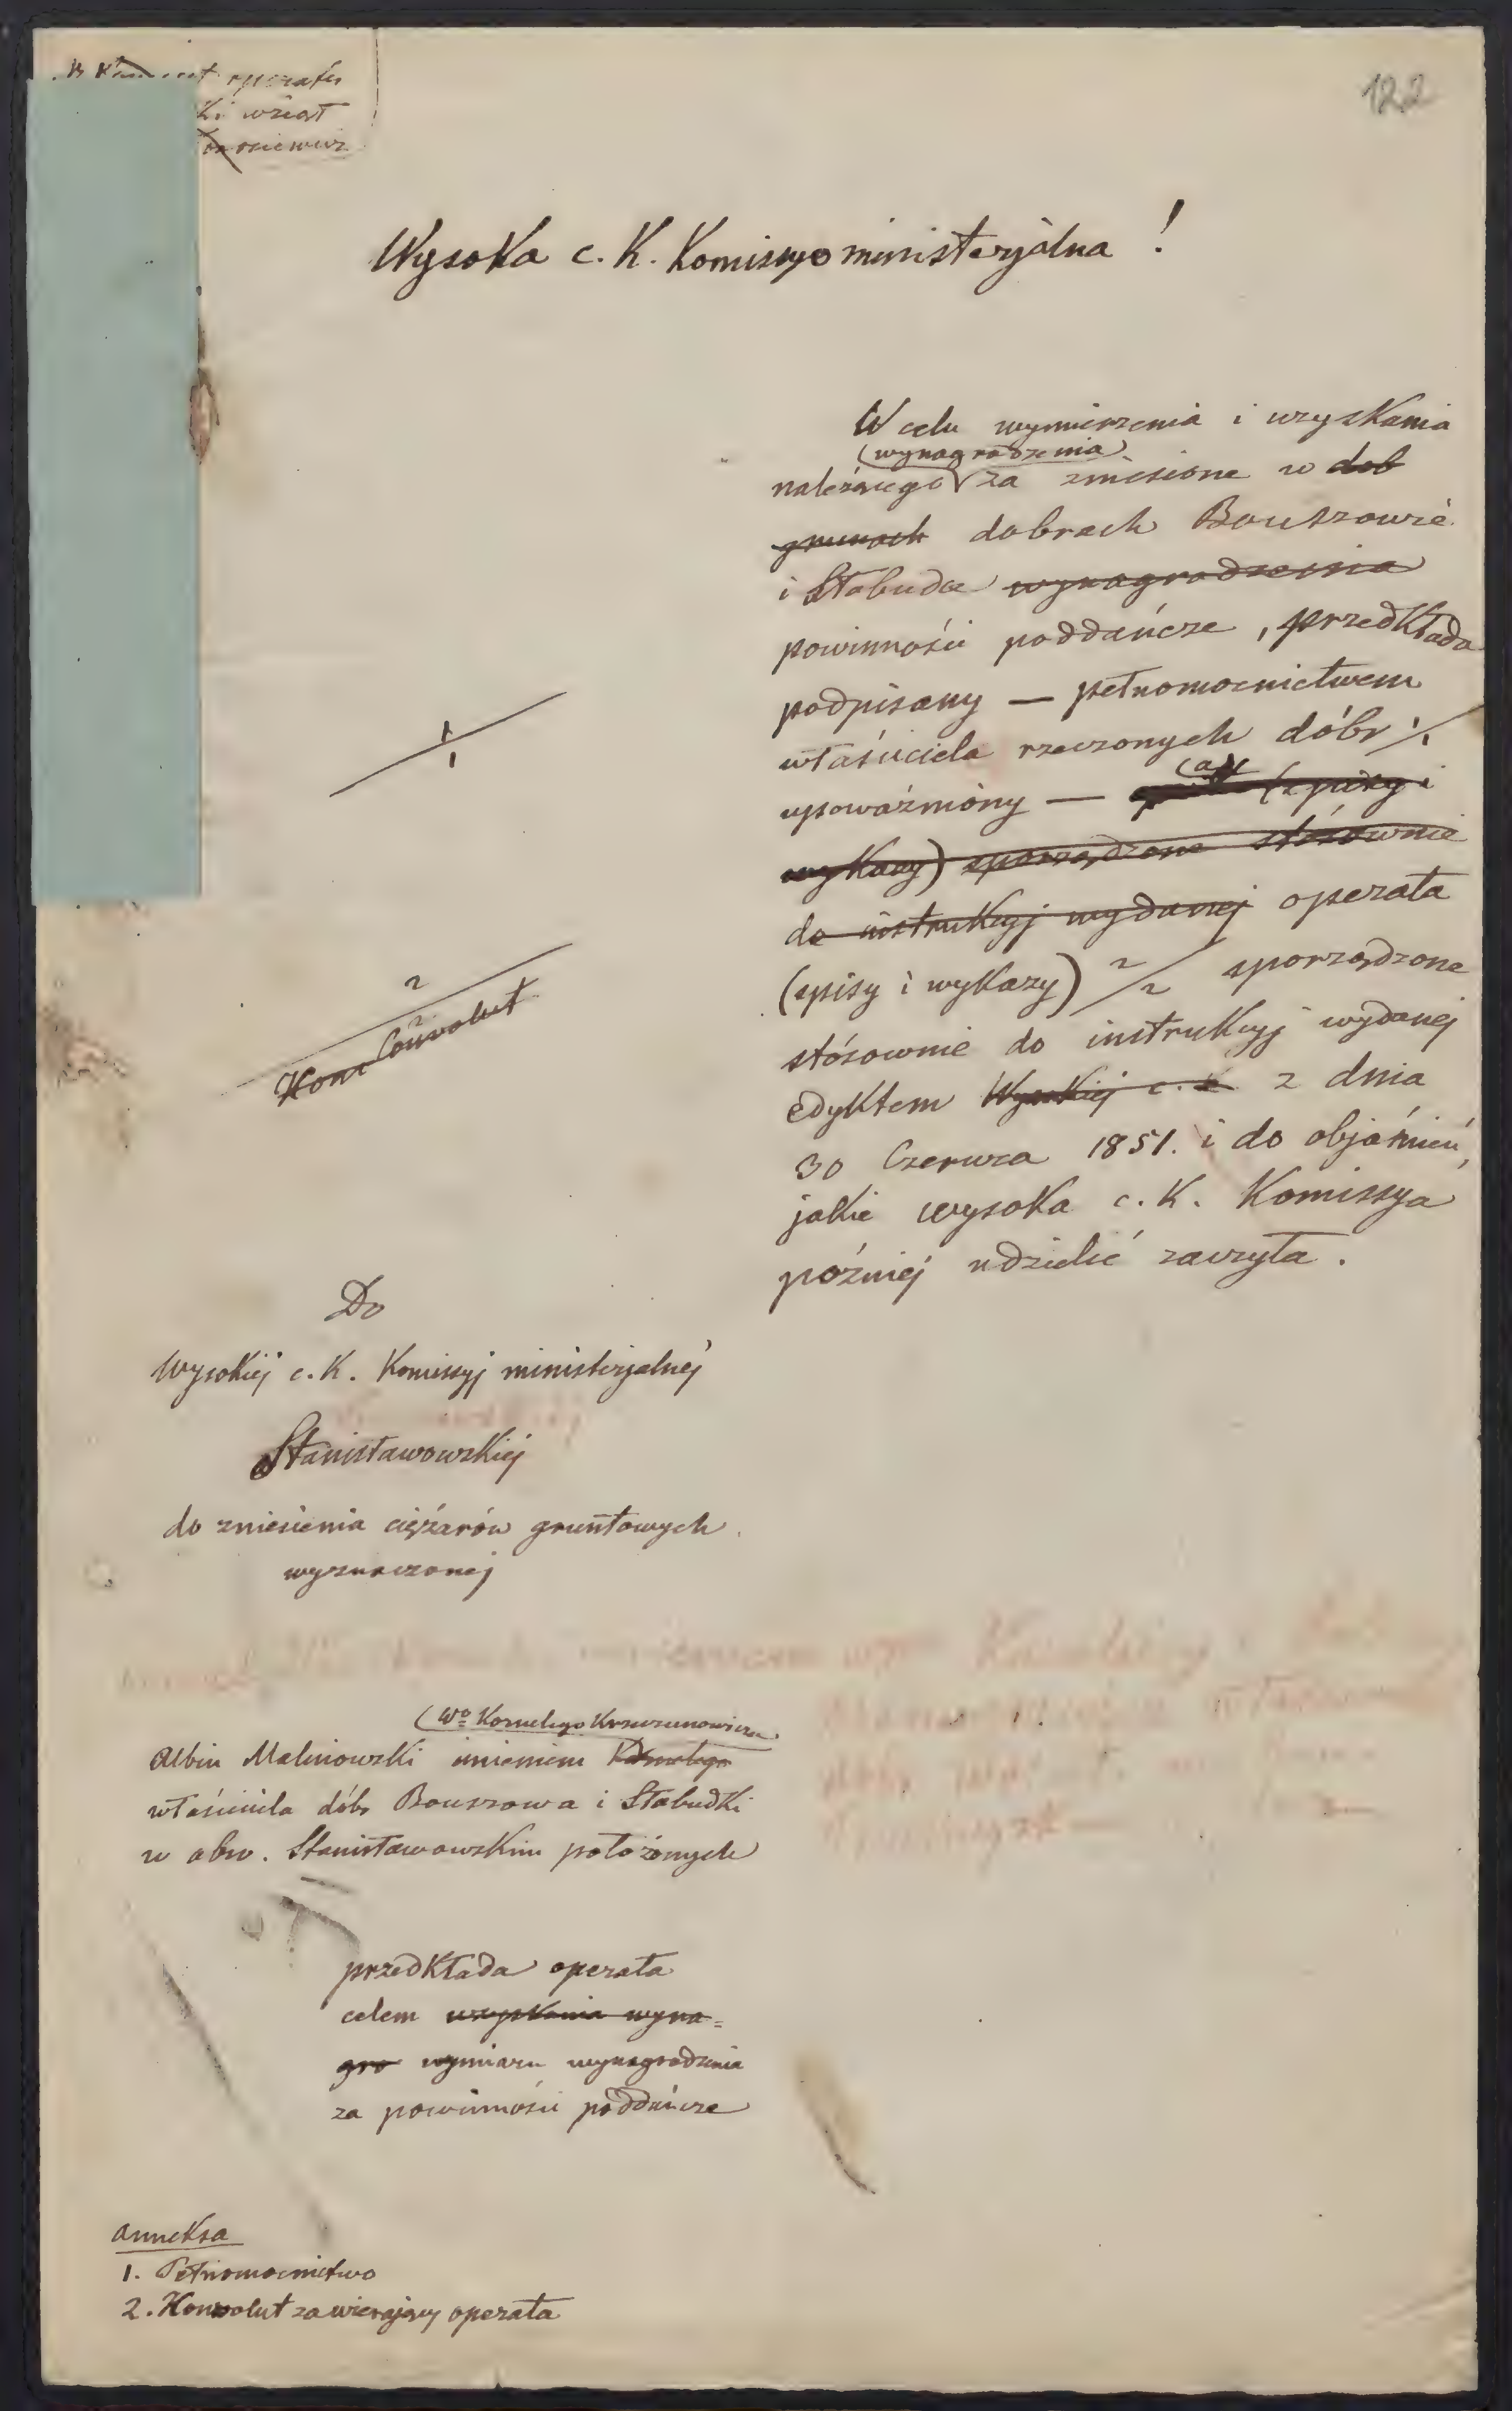 operatu
ki wziął
122
Wysoka c. K. Komissyo ministeryalna !
W celu wymierzenia i uzyskania
(wynagrodzenia)
należącego za zniesione w dob
grunach dobrach Bouszowie
i Słobudce wynagrodzenia
powinności poddańcze, przedkłada
podpisany — pełnomocnictwem
właściciela rzeczonych dóbr 1/1
upoważniony — (spisy i
wykazy) sporządzone stósownie
do instrukcyj wydanej operata
(spisy i wykazy) 2/2 sporządzone
stósownie do instrukcyj wydanej
edyktem Wysokiej c. K z dnia
30 Czerwca 1851. i do objaśnień,
jakie wysoka c. K. Komissya
późniéj udzielić zaczyła.
1
1
2
2
Kon Convolut
Do
Wysokiéj c. K. Komissyj ministeryalnéj
Stanisławowskiéj
do zniesienia ciężarów gruntowych
wyznaczonéj
(Wo Kornelego Krzeczunowicza
Albin Malinowski imieniem Kornelego
właściciela dóbr Bouszowa i Słobudki
w obw. Stanisławowskim położonych
przedkłada operata
celem uzyskania wyna=
gro wymiaru wynagrodzenia
za powinności poddańcze
Anneksa
1. Pełnomocnictwo
2. Konvolut zawierający operata